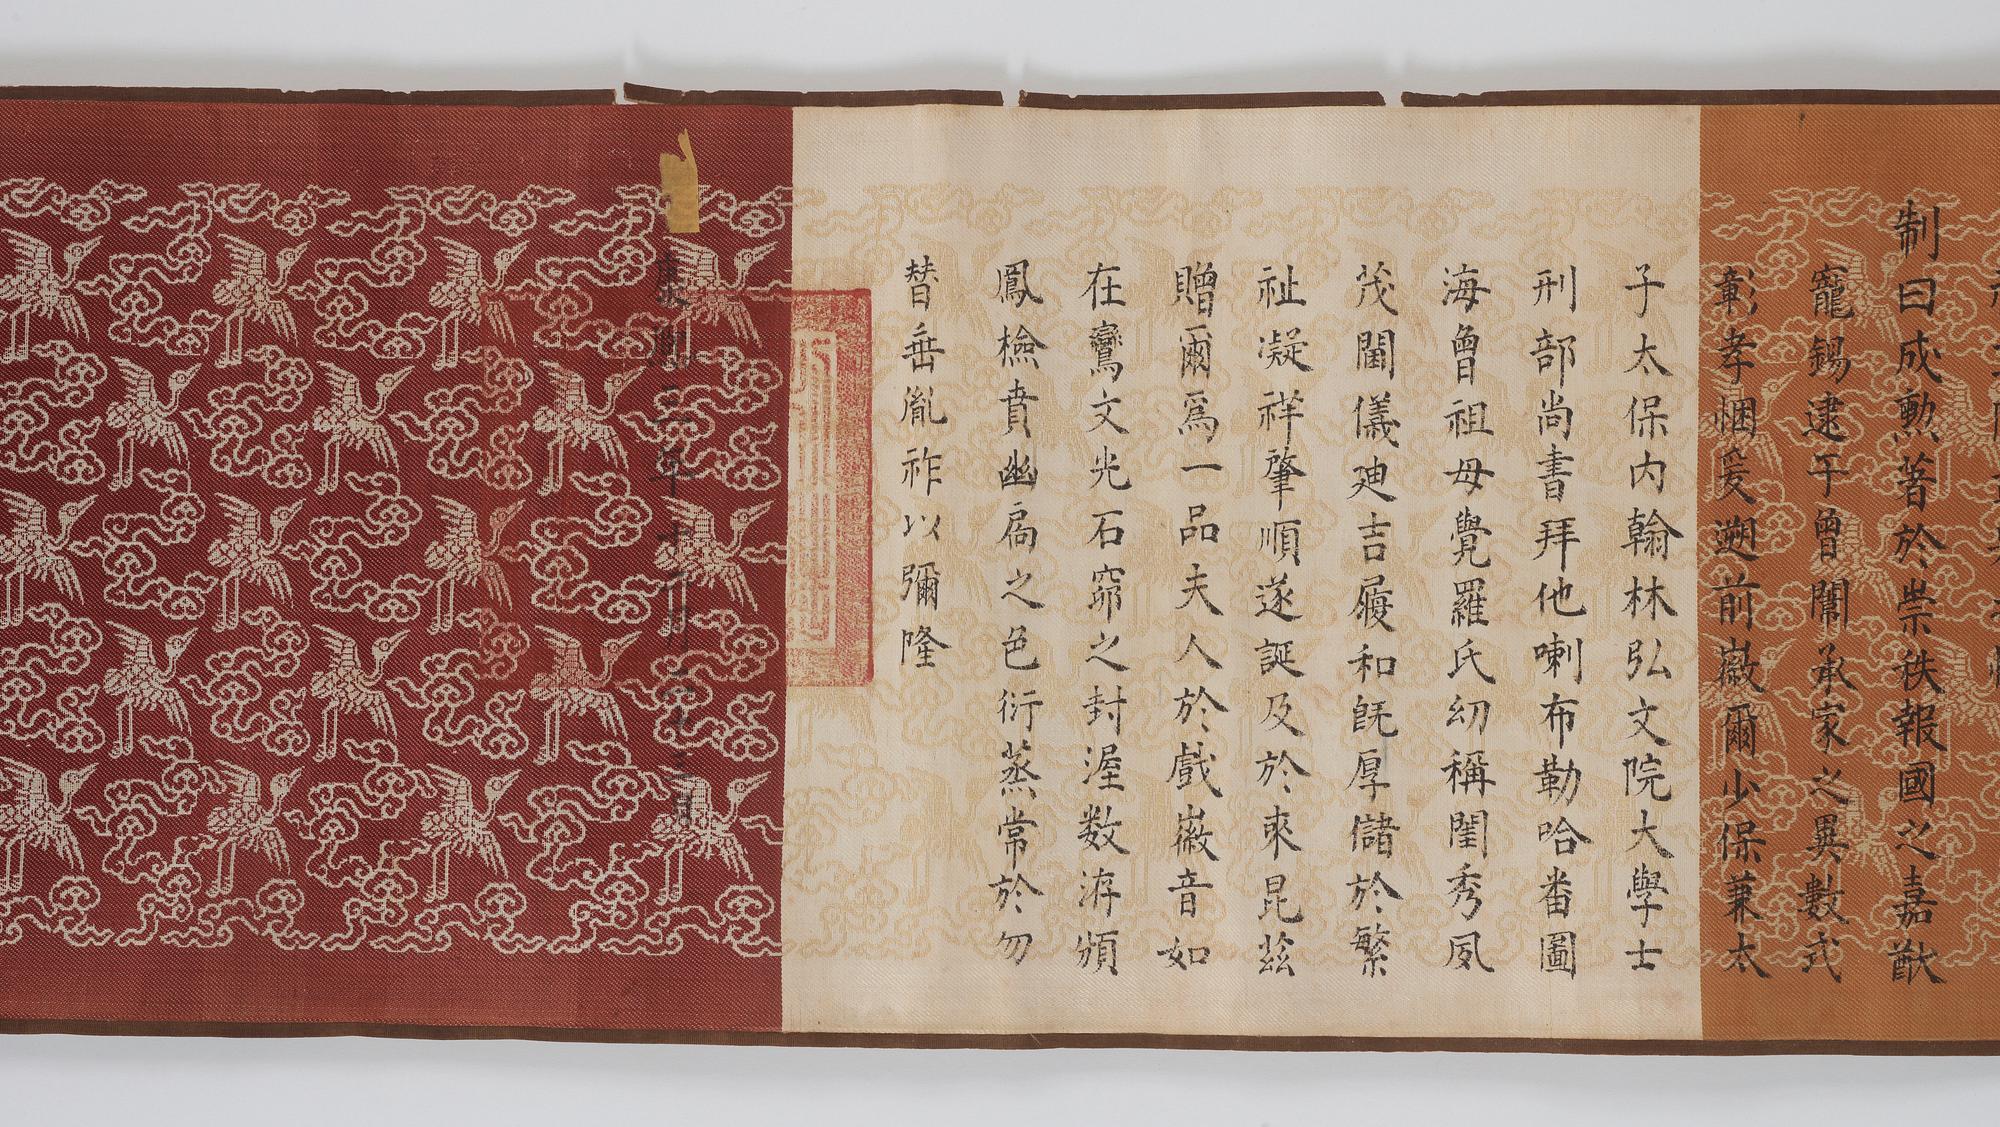 制曰成勲著於崇秩報國之嘉猷
寵錫逮于曾闈承家之異數式
彰孝悃爰遡前徽爾少保兼太
子太保内翰林弘文院大學士
刑部尚書拜他喇布勒哈番圖
海曾祖母覺羅氏幼稱閨秀夙
茂閫儀廸吉履和旣厚儲於繁
祉凝祥肇順遂誕及於來昆兹
贈爾爲一品夫人於戲徽音如
在鸞文光石窌之封渥数洊頒
鳳檢賁幽扃之色衍蒸常於勿
替垂胤祚以彌隆
康熙三年十一月二十三日